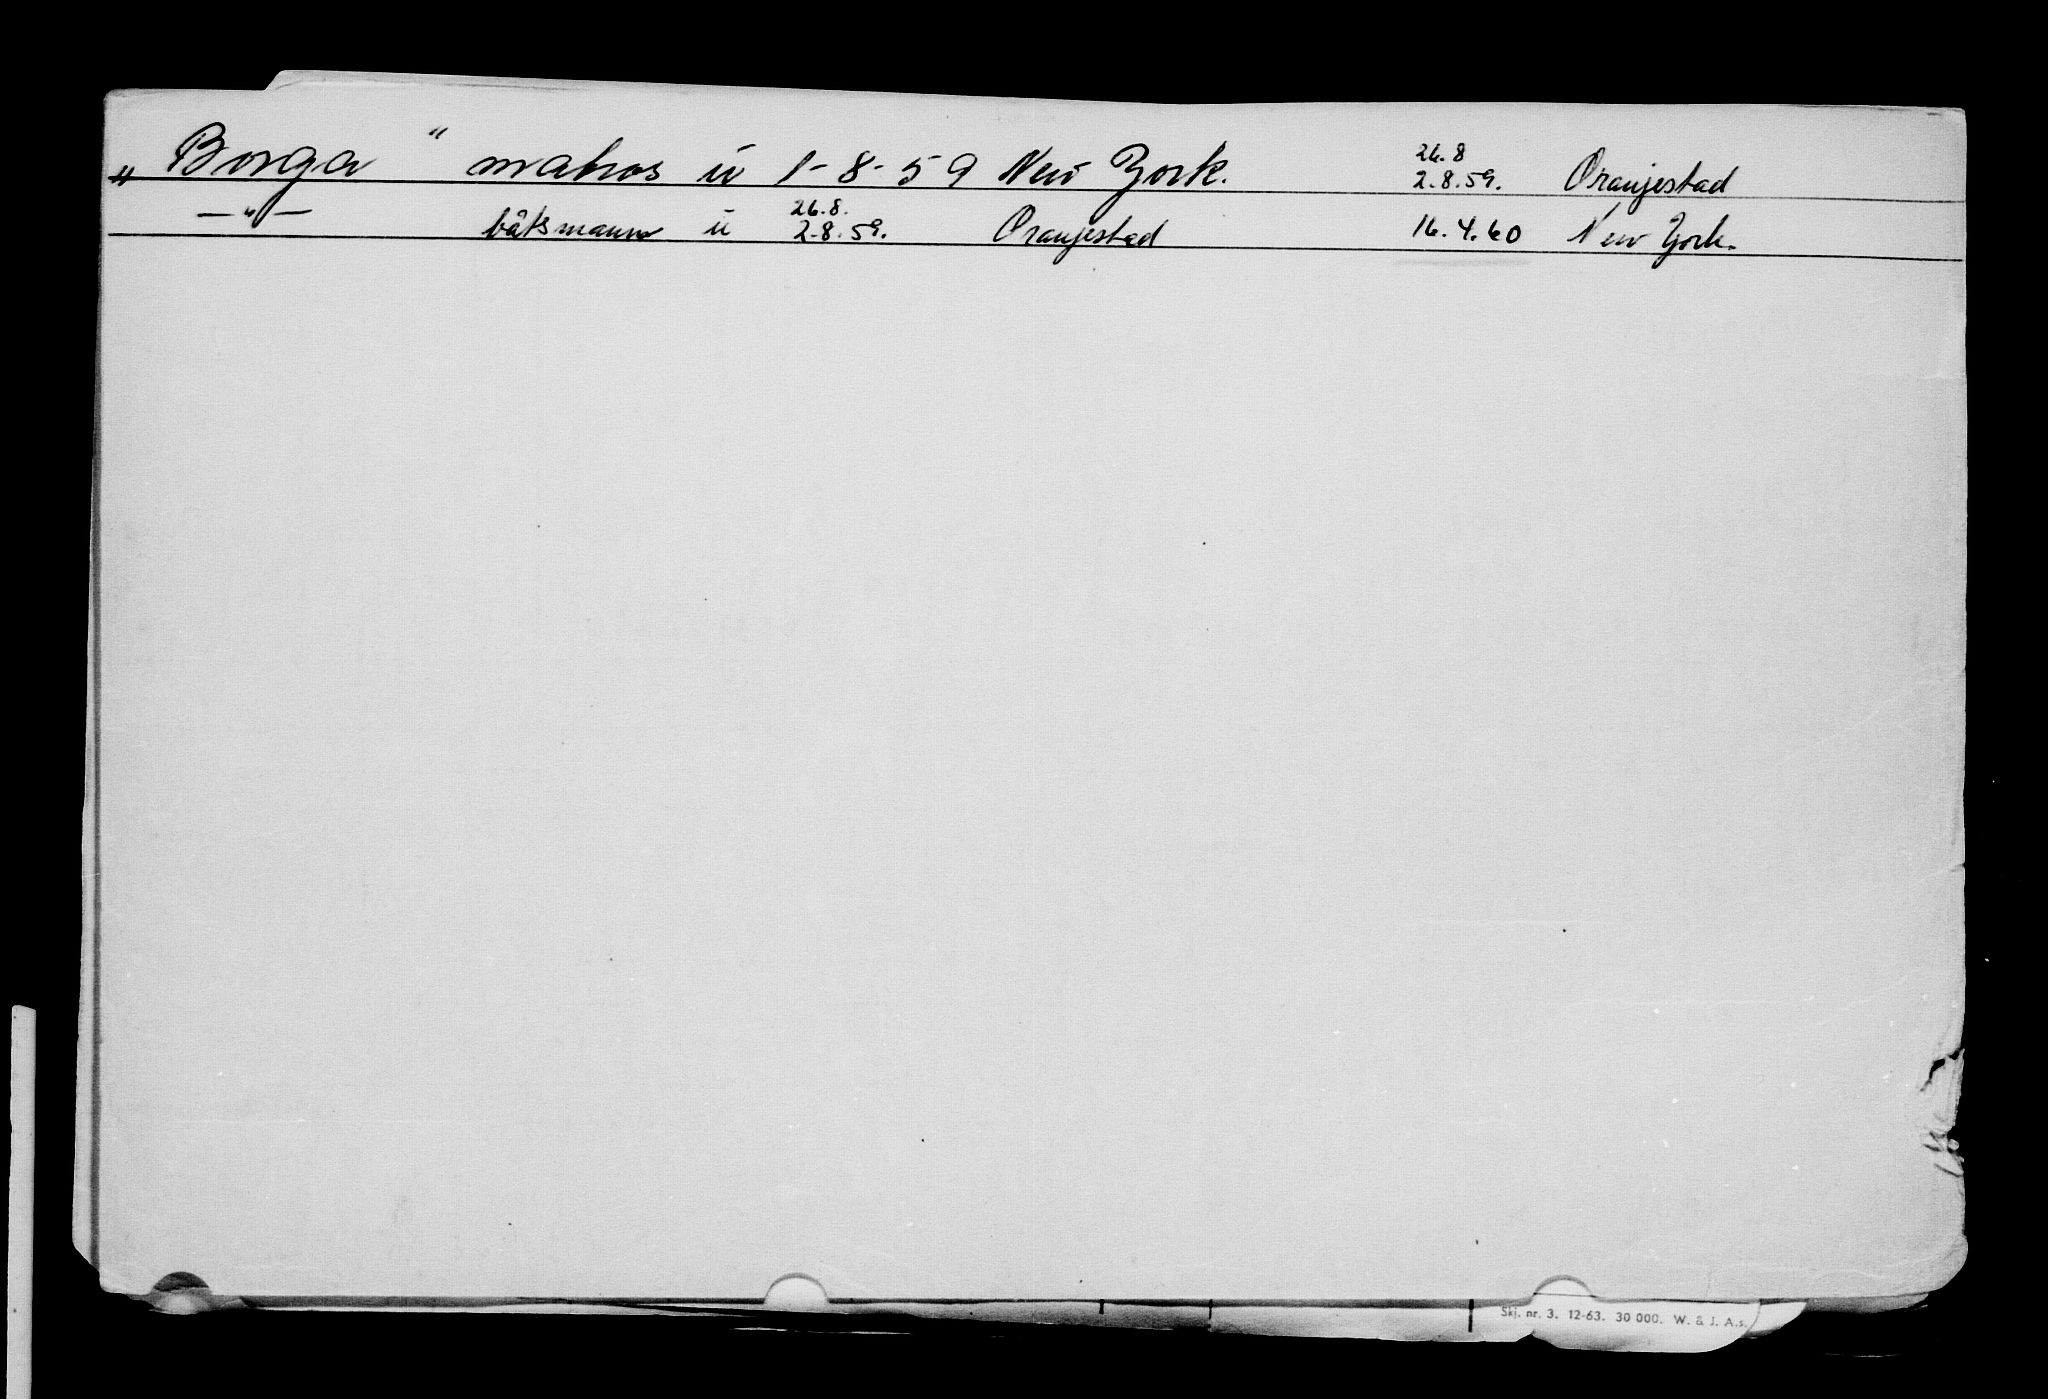 „ Borga “ matros u 1-8-59 New York. 26.8 2.8.59. Oranjestad
—"— båtsmann u 26.8. 2.8.59. Oranjestad 16.4.60 New York.
Skj. nr. 3. 12-63. 30 000. W. & J. A.s.